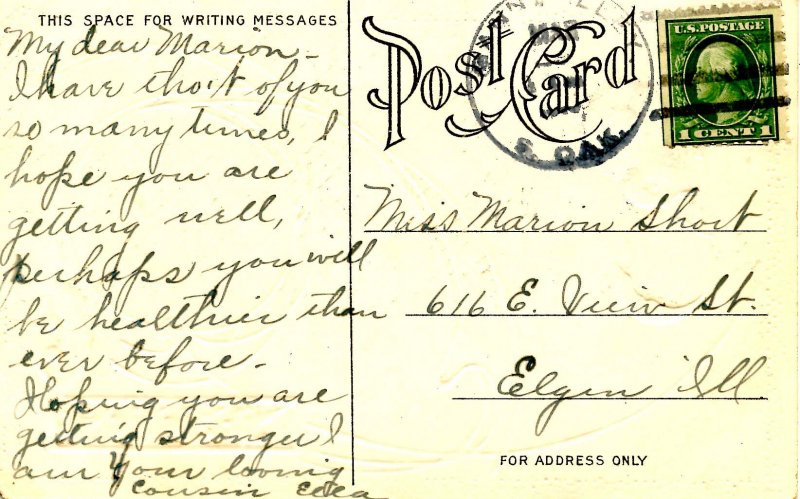 THIS SPACE FOR WRITING MESSAGES
My dear Marion -
I have tho't of you
so many times, I
hope you are
getting well,
perhaps you will
be healthier than
ever before -
Hoping you are
getting stronger I
am Your loving
cousin
Post Card
MAR
S. DAK.
U.S. POSTAGE
1 CENT 1
Miss Marion Short
616 E. View St.
Elgin Ill
FOR ADDRESS ONLY